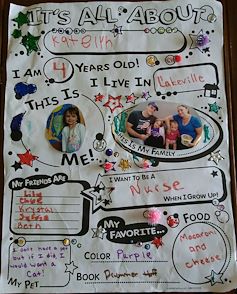 IT'S ALL ABOUT?
Katelyn
I AM 4 YEARS OLD!
I LIVE IN Lakeville
THIS IS
ME!..
THIS IS MY FAMILY
MY FRIENDS ARE
Lily
Chloe
Krystal
Sylvia
Beth
I WANT TO BE A
Nurse
WHEN I GROW UP!
MY FAVORITE...
COLOR Purple
BOOK
FOOD
Macaroni
and
Cheese
I don't have a pet
but if I did, I
would want a
Cat!
MY PET